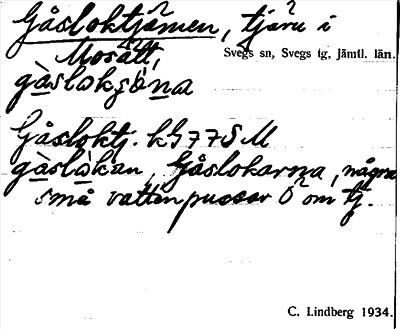 Gåsloktjärnen, tjärn i
Mosätt,
Svegs sn, Svegs tg, Jämtl. län.
gåslokşöna
Gåsloktj. kG77SM
gåslökan, Gåslokarna, några
små vattenpussar Ö om tj.
C. Lindberg 1934.